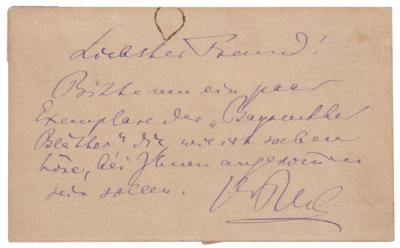 Liebster Freund!
Bitte um ein paar
Exemplare der „Bayreuther
Blätter" die, wie ich soeben
höre, bei Ihnen angekommen
sein sollen.